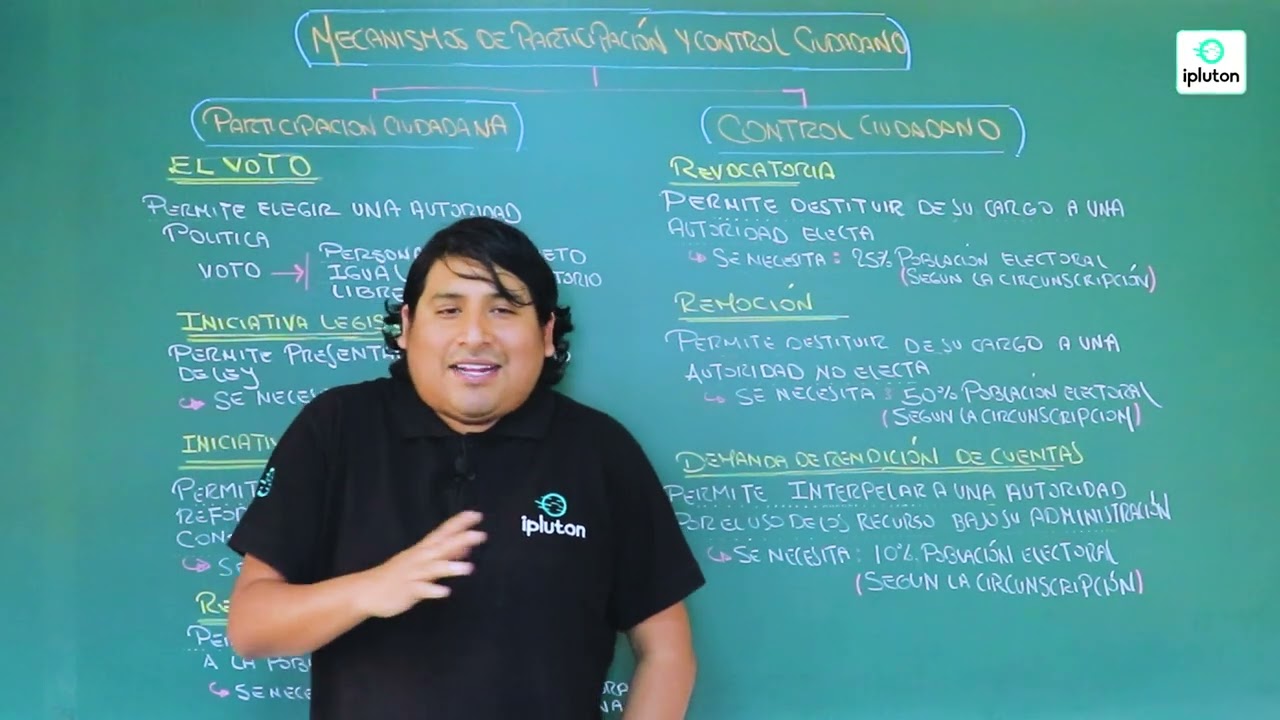 MECANISMOS DE PARTICIPACIÓN Y CONTROL CIUDADANO
ipluton
PARTICIPACION CIUDADANA
EL VOTO
PERMITE ELEGIR UNA AUTORIDAD
POLITICA
VOTO → PERSONA
IGUAL
LIBRE
INICIATIVA LEGIS
PERMITE PRESENT
DE LEY
↪ SE NECES
INICIATIV
PERMIT
REFOR
CON
↪ SE
RE
PE
A LA POB
↪ SE NECE
CONTROL CIUDADANO
REVOCATORIA
PERMITE DESTITUIR DE SU CARGO A UNA
AUTORIDAD ELECTA
↪ SE NECESITA : 25% POBLACION ELECTORAL
(SEGUN LA CIRCUNSCRIPCIÓN)
REMOCIÓN
PERMITE DESTITUIR DE SU CARGO A UNA
AUTORIDAD NO ELECTA
↪ SE NECESITA : 50% POBLACIÓN ELECTORAL
(SEGUN LA CIRCUNSCRIPCION)
DEMANDA DE RENDICIÓN DE CUENTAS
PERMITE INTERPELAR A UNA AUTORIDAD
POR EL USO DE LOS RECURSO BAJO SU ADMINISTRACIÓN
↪ SE NECESITA : 10% POBLACIÓN ELECTORAL
(SEGUN LA CIRCUNSCRIPCIÓN)
ipluton